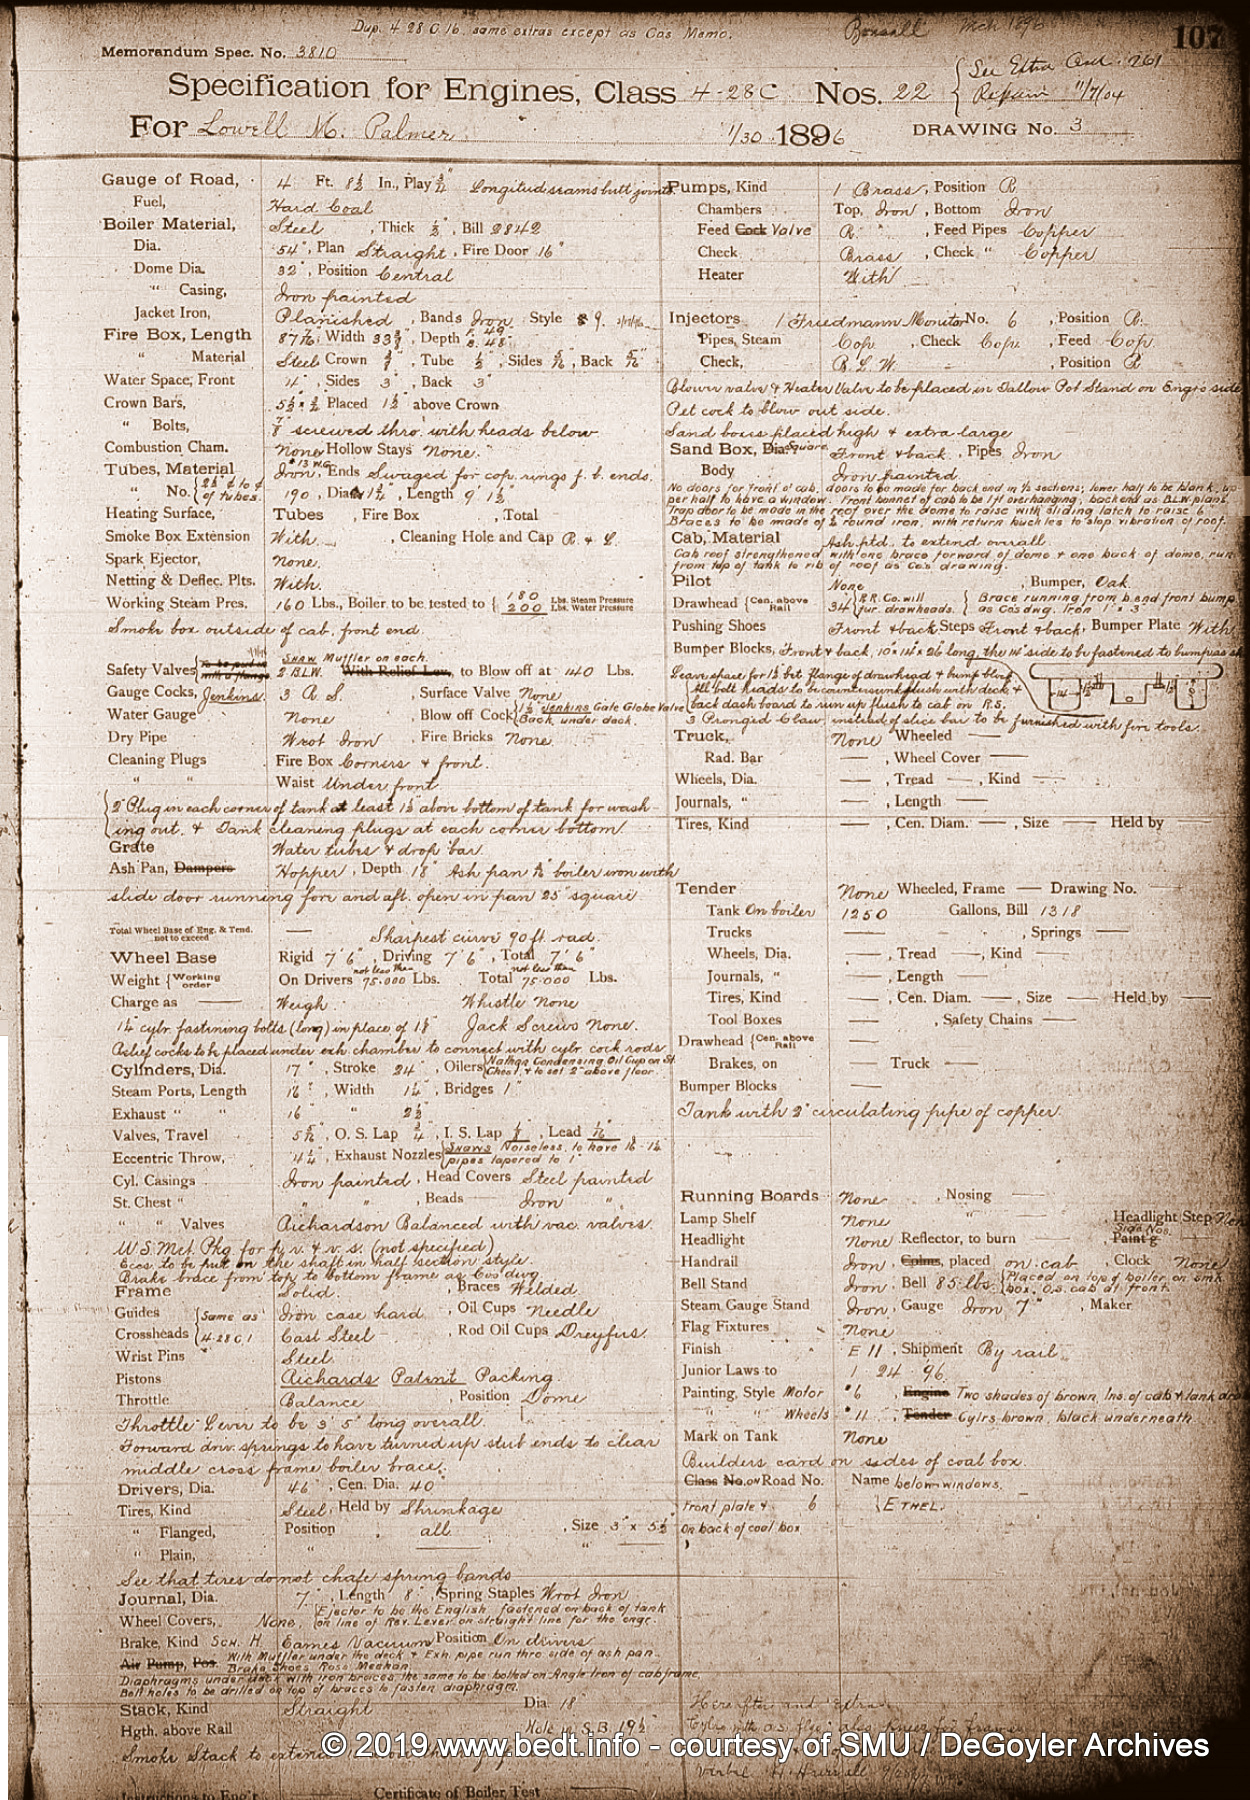 Dup. 4 28 C 16 same extras except as Cas Memo.
Mch 1896
107
Memorandum Spec. No. 3810
See Extra Ord. 761
Repairs 11/7/04
Specification for Engines, Class 4-28 C Nos. 22
For Lowell M. Palmer 1/30 1896 DRAWING No. 3
Gauge of Road, 4 Ft. 8½ In., Play ¾" Longitud seams butt joints.
Fuel, Hard Coal
Boiler Material, Steel , Thick ½" , Bill 2842
Dia. 54" , Plan Straight , Fire Door 16"
Dome Dia. 32" , Position Central
" Casing, Iron painted
Jacket Iron, Planished , Bands Iron Style 9.
Fire Box, Length 87 7/16 , Width 33 , Depth F. 49 B. 48"
" Material Steel Crown , Tube ½" , Sides 5/16" , Back 5/16"
Water Space, Front 4" , Sides 3" , Back 3"
Crown Bars, Placed 1½" above Crown
" Bolts, 7/8" screwed thro', with heads below
Combustion Cham. None Hollow Stays None.
Tubes, Material Iron, #13 W.G. Ends Swaged for cop. rings f. b. ends.
" No. 2½" ¢ to ¢ of tubes. 190 , Dia. 1½" , Length 9' 1½"
Heating Surface, Tubes , Fire Box , Total
Smoke Box Extension With. , Cleaning Hole and Cap R. & L.
Spark Ejector, None.
Netting & Deflec. Plts. With.
Working Steam Pres. 160 Lbs., Boiler to be tested to 180 Lbs. Steam Pressure 200 Lbs. Water Pressure
Smoke box outside of cab, front end.
Shaw Muffler on each.
Safety Valves To be put in with a flange 2 B.L.W. With Relief Lev., to Blow off at 140 Lbs.
Gauge Cocks, Jenkins. 3 R. S. , Surface Valve None
Water Gauge None , Blow off Cock 1½" Jenkins Gate Globe Valve Back, under deck.
Dry Pipe Wrot Iron , Fire Bricks None
Cleaning Plugs Fire Box Corners & front.
" " Waist Under front
2" Plug in each corner of tank at least 1½" above bottom of tank for wash-
ing out. & Tank cleaning plugs at each corner bottom.
Grate Water tubes & drop bar.
Ash Pan, Dampers Hopper , Depth 18" Ash pan ¼" boiler iron with
slide door running fore and aft. open in pan 25" square
Total Wheel Base of Eng. & Tend. not to exceed — Sharpest curve 90 ft. rad.
Wheel Base Rigid 7' 6" , Driving 7' 6" , Total 7' 6"
Weight Working order On Drivers not less than 75.000 Lbs. Total not less than 75.000 Lbs.
Charge as — Weigh Whistle None
1¼" cylr. fastining bolts (long) in place of 1⅛" Jack Screws None.
Relief cocks to be placed under exh. chamber to connect with cylr. cock rods
Cylinders, Dia. 17" , Stroke 24" , Oilers Nathan Condensing Oil Cup on St. Chest, & to set 2" above floor.
Steam Ports, Length 16" , Width 1¼" , Bridges 1"
Exhaust " " 16 " 2½"
Valves, Travel 5 , O. S. Lap ¾" , I. S. Lap , Lead 1/16"
Eccentric Throw, 4¼" , Exhaust Nozzles Shaws Noiseless, to have pipes tapered to 1"
Cyl. Casings Iron painted , Head Covers Steel painted
St. Chest " " " , Beads Iron "
" " Valves Richardson Balanced with vac. valves.
U S Met. Pkg for p. r. & v. s. (not specified)
Eccs to be put on the shaft in half section style.
Brake brace from top to bottom frame as Co's dwg.
Frame Solid. , Braces Welded.
Guides Same as 4-28 C 1 Iron case hard , Oil Cups Needle
Crossheads Cast Steel , Rod Oil Cups Dreyfus.
Wrist Pins Steel.
Pistons Richards Patent Packing.
Throttle Balance , Position Dome
Throttle Lever to be 3' 5" long overall.
Forward driv. springs to have turned up stub ends to clear
middle cross frame boiler brace.
Drivers, Dia. 46" , Cen. Dia. 40"
Tires, Kind Steel, Held by Shrinkage
" Flanged, Position all , Size 3" x 5½"
" Plain, " — " —
See that tires do not chafe spring bands
Journal, Dia. 7" , Length 8" , Spring Staples Wrot Iron
Wheel Covers, None, Ejector to be the English, fastened on back of tank on line of Rev. Lever on straight line for the engr.
Brake, Kind Sch. H. Eames Vacuum Position On drivers
Air Pump, Pos. With Muffler under the deck & Exh. pipe run thro side of ash pan.
Brake Shoes Ross Meehan
Diaphragms under deck with iron braces the same to be bolted on Angle Iron of cab frame,
Bolt holes to be drilled on top of braces to fasten diaphragm.
Stack, Kind Straight Dia. 18"
Hgth. above Rail Hole in S.B. 19½"
Smoke Stack to extend
Certificate of Boiler Test
Instructions to Eng'r
Pumps, Kind 1 Brass , Position R.
Chambers Top, Iron , Bottom Iron
Feed Cock Valve R. " , Feed Pipes Copper
Check Brass , Check " Copper
Heater With
Injectors 1 Friedmann Monitor No. 6 , Position R.
Pipes, Steam Cop. , Check Cop. , Feed Cop.
Check, B. L. W. , Position R
Blower valve & Heater Valve to be placed in Tallow Pot Stand on Engrs side
Pet cock to blow out side.
Sand boxes placed high & extra large
Sand Box, Dia. Square Front & back , Pipes Iron
Body Iron painted
No doors for front of cab, doors to be made for back end in ½ sections; lower half to be blank, up-
per half to have a window. Front bonnet of cab to be 1 ft overhanging, back end as B.L.W. plans.
Trap door to be made in the roof over the dome to raise with sliding latch to raise 6"
Braces to be made of ½ round iron, with return buckles to stop vibration of roof.
Cab, Material Ash ptd. to extend overall.
Cab roof strengthened with one brace forward of dome & one back of dome, run
from top of tank to rib of roof as Co's drawing.
Pilot None , Bumper, Oak.
Drawhead Cen. above Rail 34 R.R. Co. will fur. drawheads. Brace running from b. end front bump. as Co's dwg. Iron 1" x 3"
Pushing Shoes Front & back Steps Front & back, Bumper Plate With
Bumper Blocks, Front & back, 10" x 14" x 26" long, the 14" side to be fastened to bumper as sk
Leave space for 1½" bet. flange of drawhead & bump. block
All bolt heads to be countersunk flush with deck &
back dash board to run up flush to cab on R.S.
3 Pronged Claw instead of slice bar to be furnished with fire tools.
Truck, None Wheeled —
Rad. Bar — , Wheel Cover —
Wheels, Dia. — , Tread — , Kind —
Journals, " — , Length —
Tires, Kind — , Cen. Diam. — , Size — Held by —
Tender None Wheeled, Frame — Drawing No. —
Tank On boiler 1250 Gallons, Bill 1318
Trucks — , Springs —
Wheels, Dia. — , Tread — , Kind —
Journals, " — , Length
Tires, Kind — , Cen. Diam. — , Size — Held by —
Tool Boxes — , Safety Chains —
Drawhead Cen. above Rail —
Brakes, on — Truck —
Bumper Blocks —
Tank with 2" circulating pipe of copper.
Running Boards None , Nosing —
Lamp Shelf None " — , Headlight Step None
Headlight None Reflector, to burn — , Paint'g Sign Nos.
Handrail Iron , Colmns, placed on cab , Clock None
Bell Stand Iron , Bell 85 lbs. Placed on top of boiler on smk. box, O.S. cab at front.
Steam Gauge Stand Iron , Gauge Iron 7" , Maker
Flag Fixtures None
Finish E 11 , Shipment By rail
Junior Laws to 1 24 96.
Painting, Style Motor #6 , Engine Two shades of brown, Ins. of cab & tank drab
" " Wheels #11 , Tender Cylrs brown, black underneath
Mark on Tank None
Builders card on sides of coal box.
Class No. on Road No. Name below windows.
Front plate & 6 ETHEL.
On back of coal box
Hereafter and extra
© 2019 www.bedt.info - courtesy of SMU / DeGolyer Archives